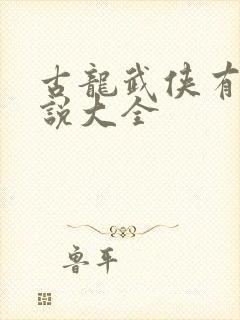 古龍武俠有
說大全
魯平